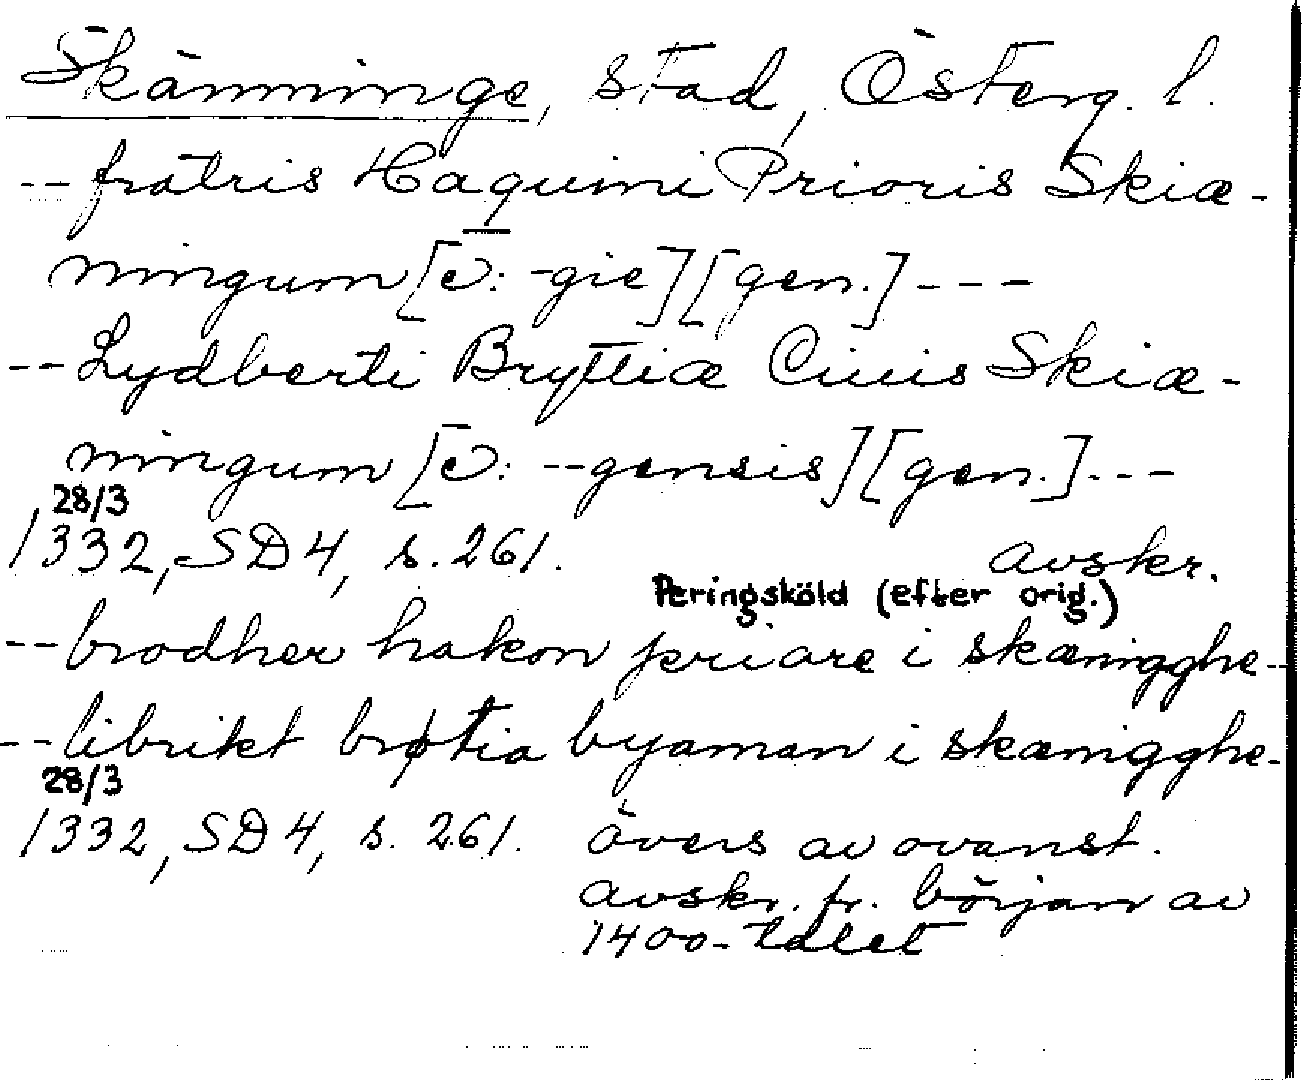 Skänninge, stad, Österg. l.
-- fratris Haquini Prioris Skiæ-
ningum [ɔ: -gie] [gen.] ---
-- Lydberti Bryttiæ Ciuis Skiæ-
ningum [ɔ: --gensis] [gen.] ---
28/3
1332, SD 4, s. 261. avskr.
Peringsköld (efter orig.)
-- brodher hakon priare i skænigghe --
-- librikt brøtia byaman i skænigghe -
28/3
1332, SD 4, s. 261. övers av ovanst.
avskr. fr. början av
1400-talet